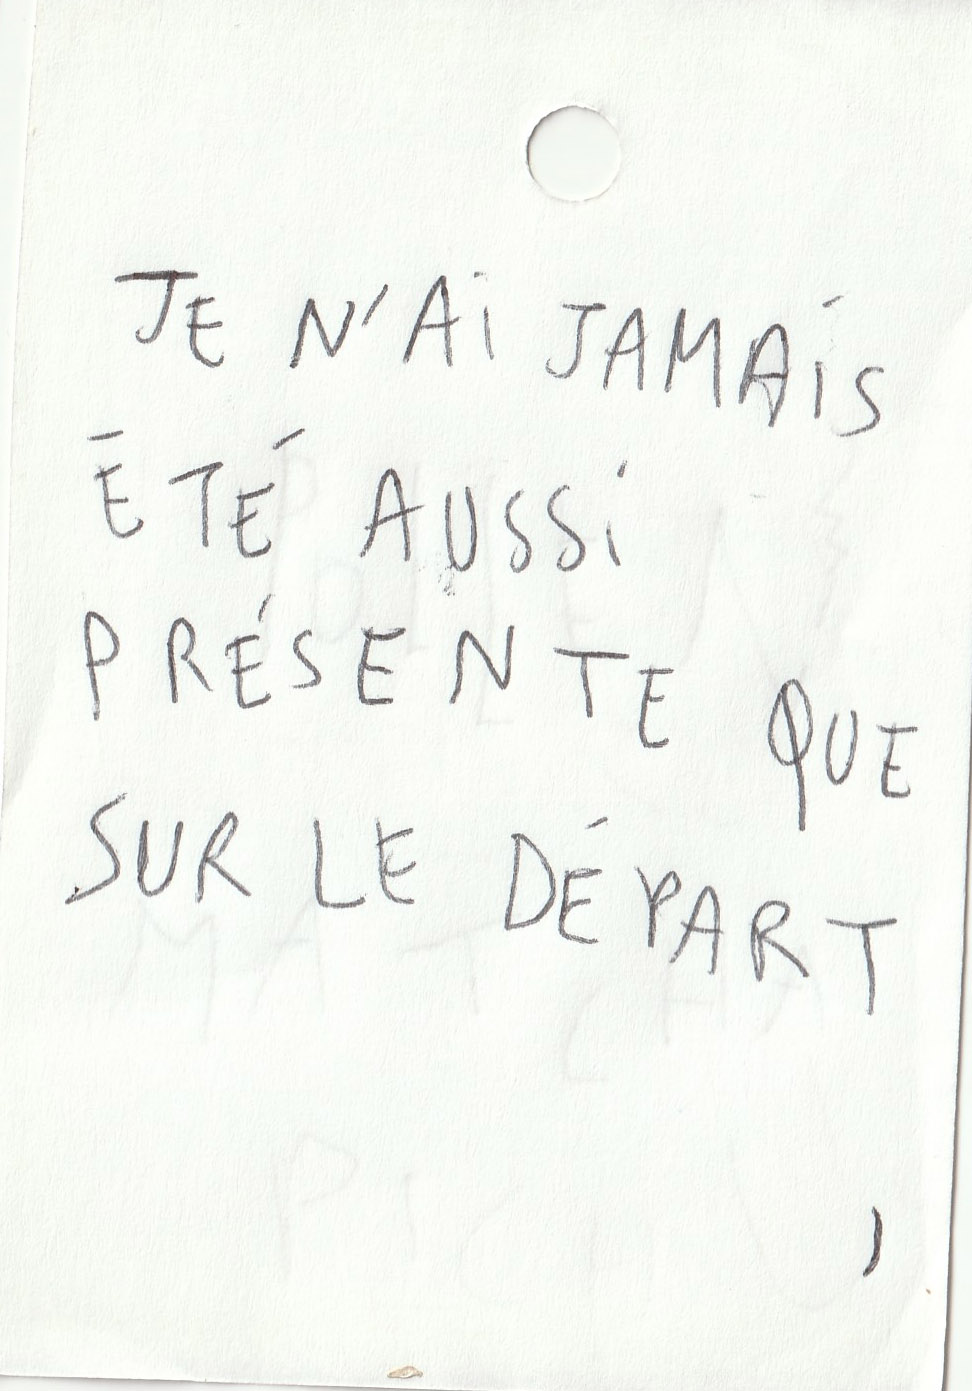 JE N'Ai JAMAiS
ÉTÉ AUSSi
PRÉSENTE QUE
SUR LE DÉPART
)